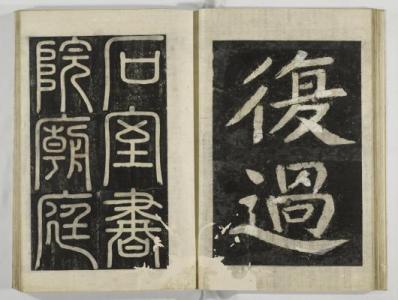 復過
石室書
院廟庭